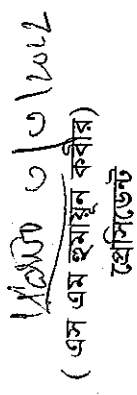 ৩/৩/২০২২
(এস এম হুমায়ূন কবীর)
প্রেসিডেন্ট